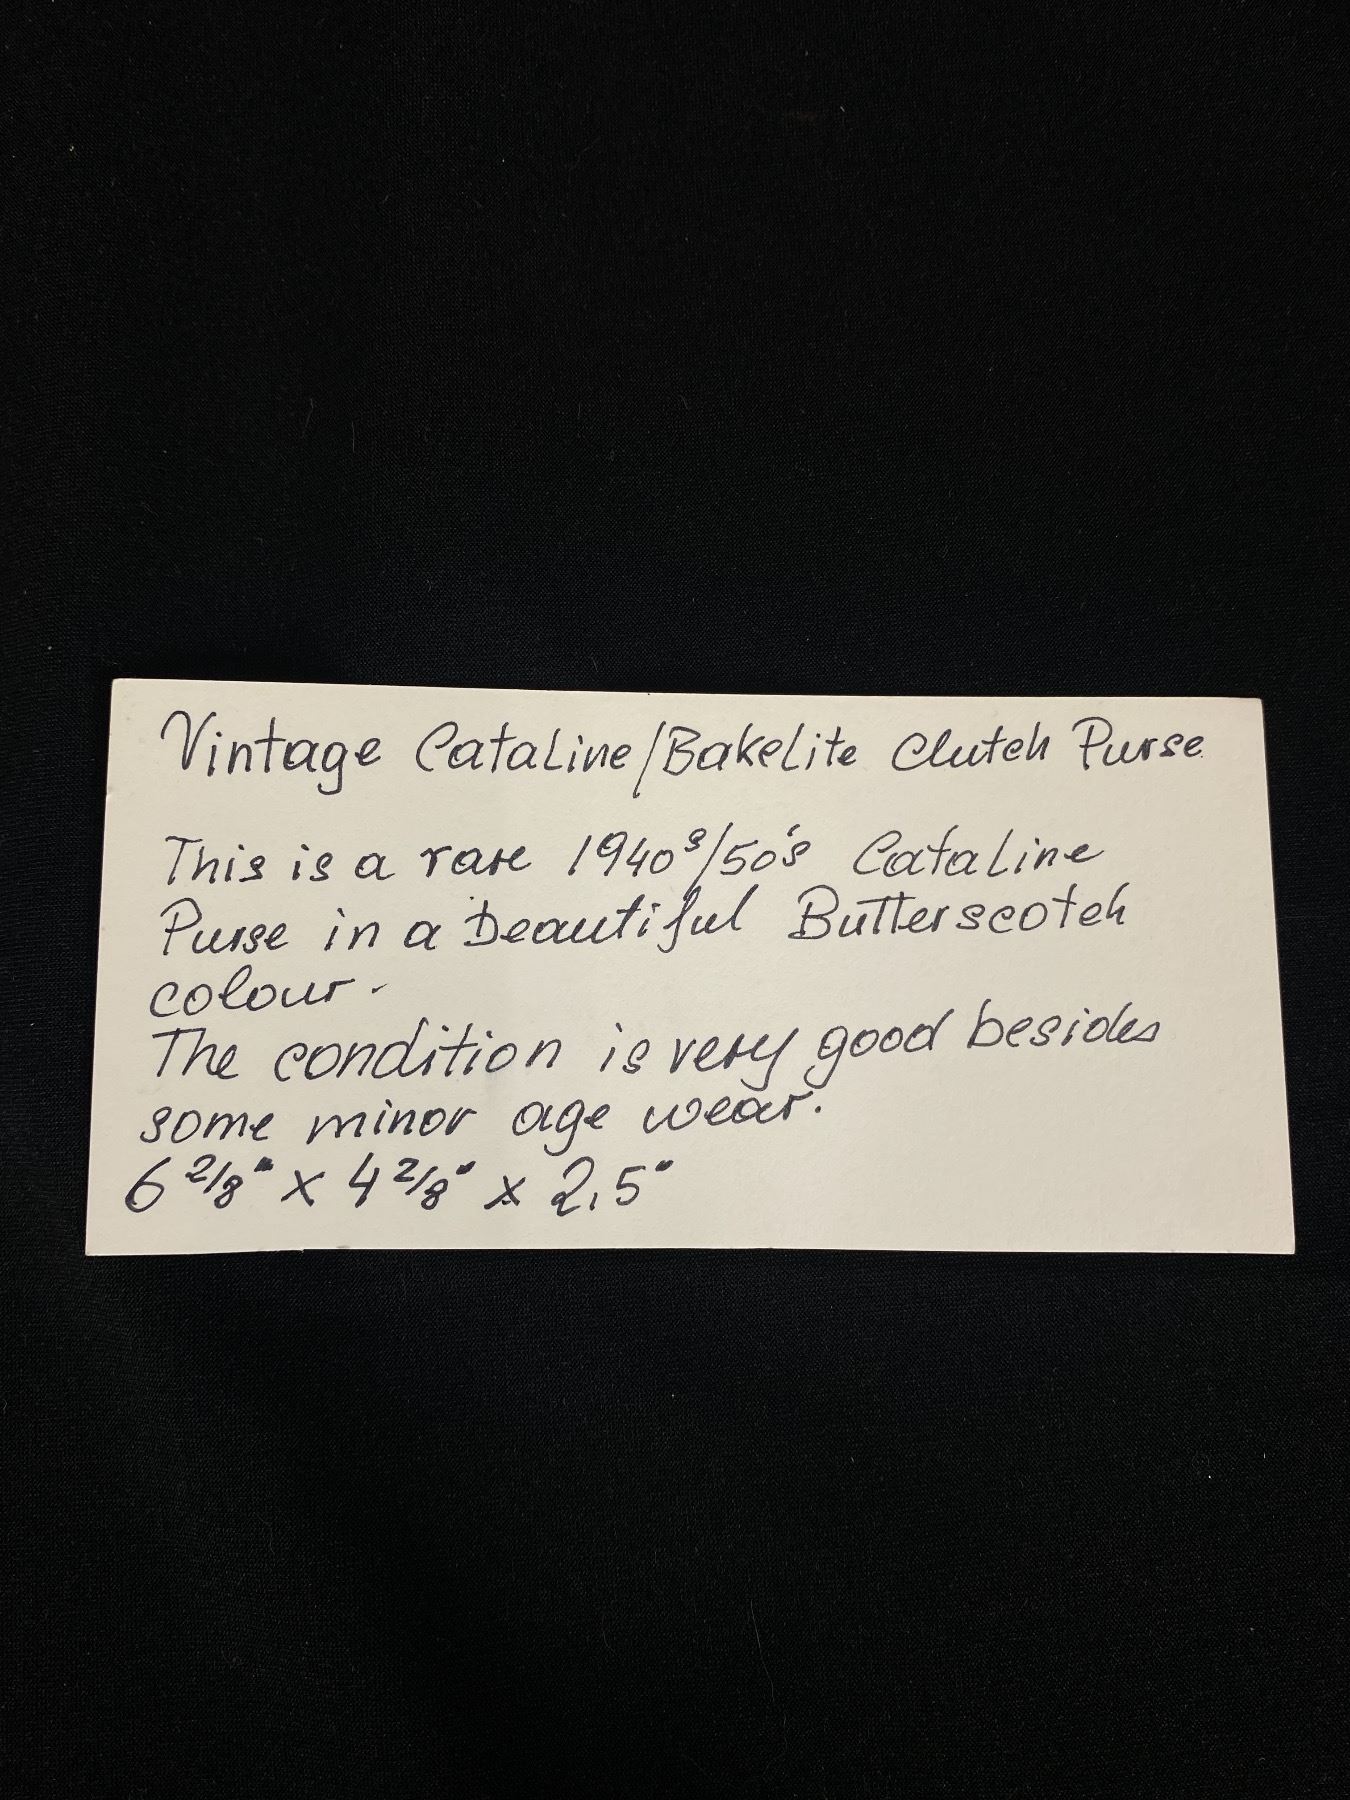 Vintage Cataline/Bakelite Clutch Purse
This is a rare 1940s/50's Cataline
Purse in a Beautiful Butterscotch
colour.
The condition is very good besides
some minor age wear.
6 2/8" x 4 2/8" x 2,5"